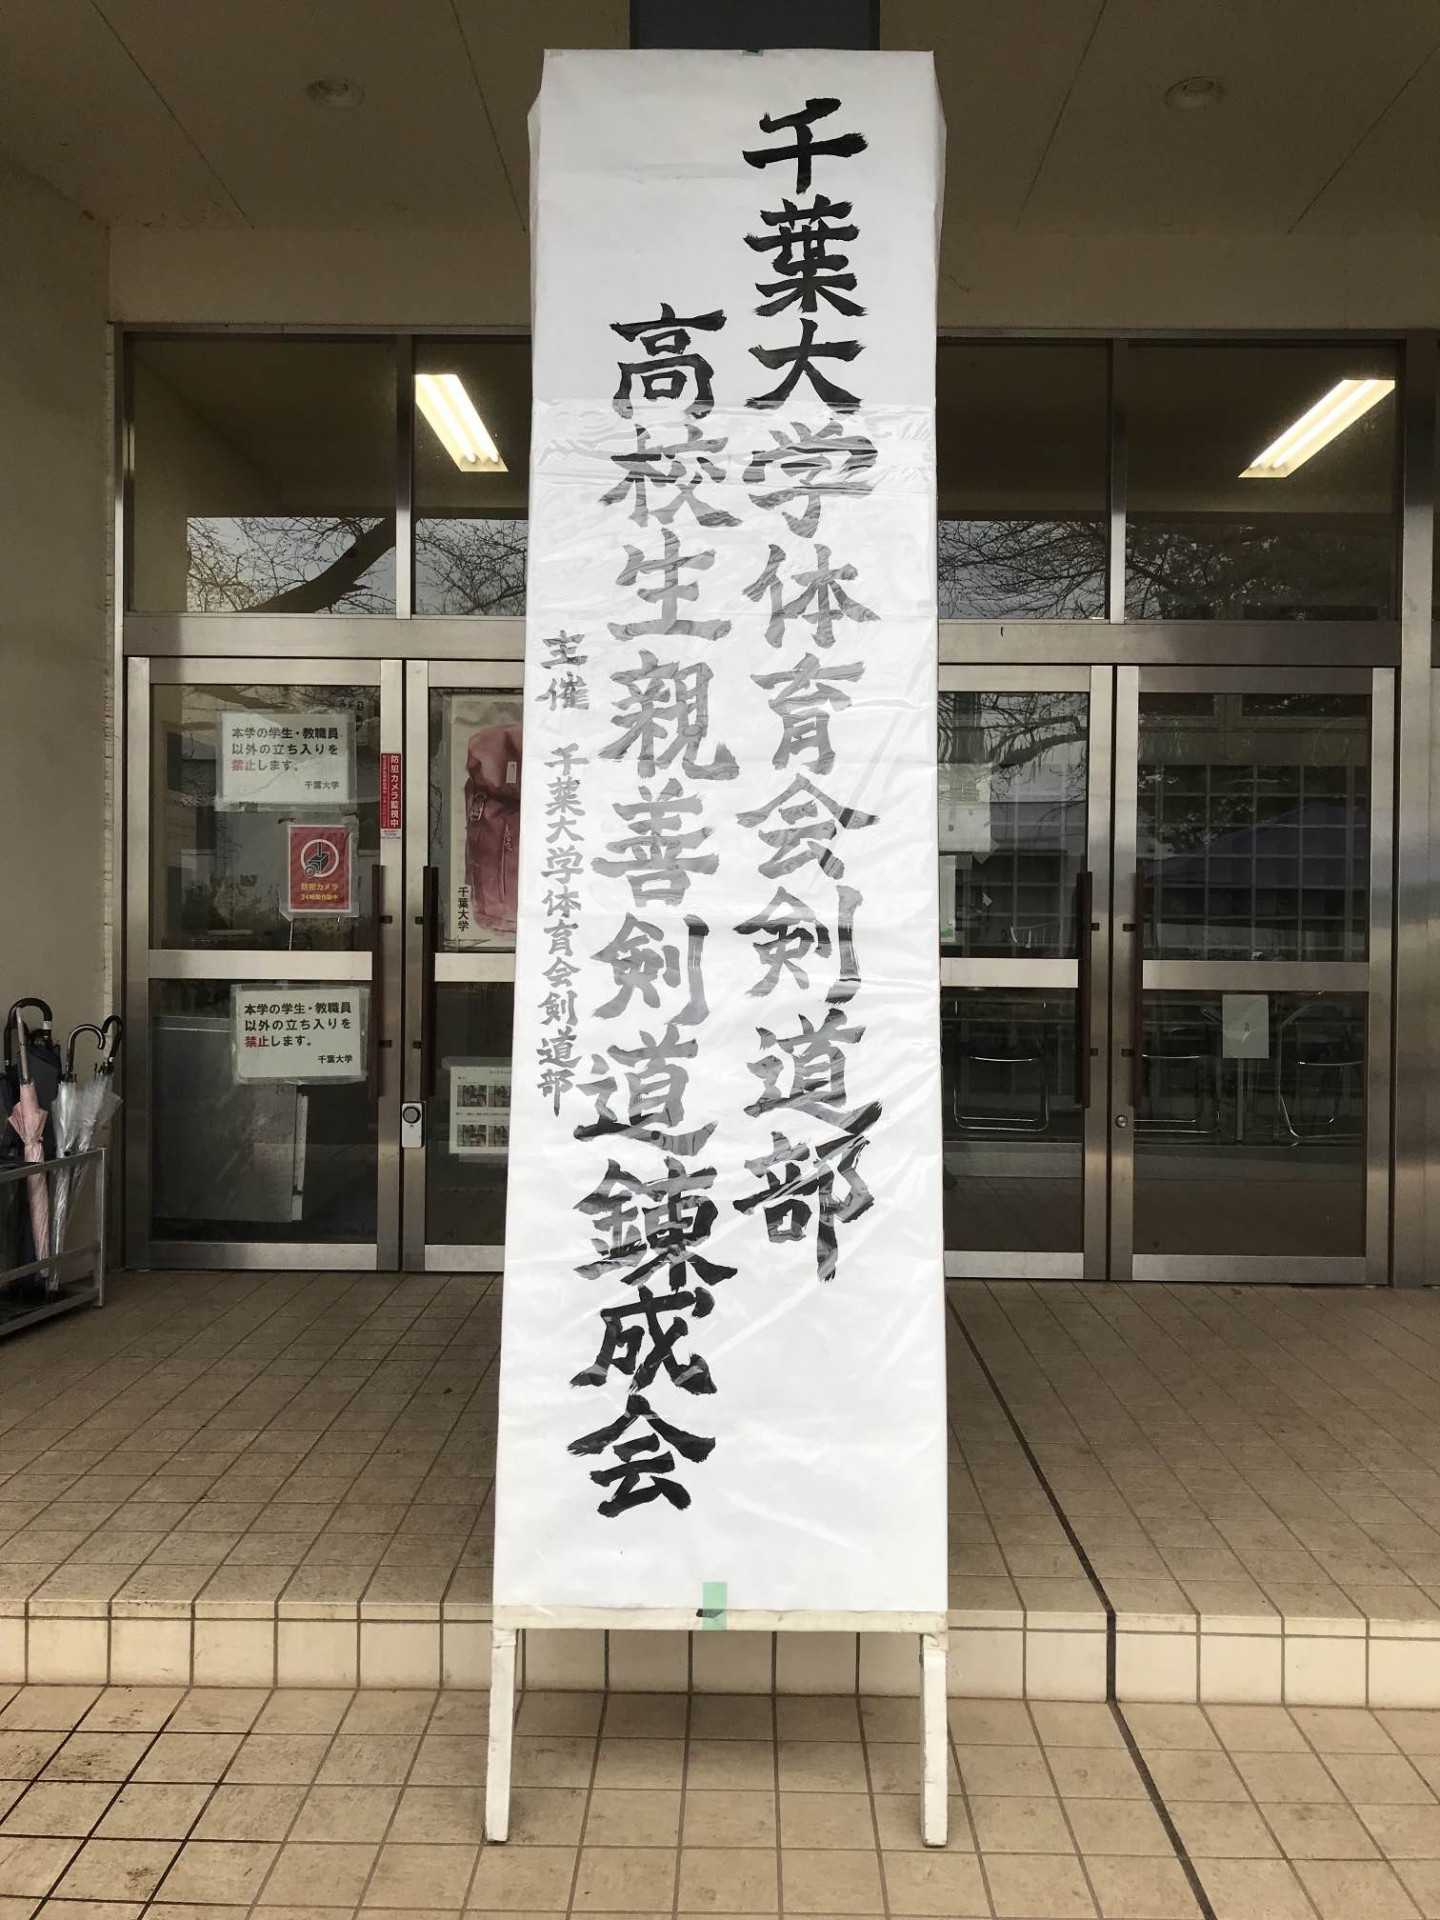 千葉大学体育会剣道部
高校生親善剣道錬成会
主催 千葉大学体育会剣道部
本学の学生・教職員
以外の立ち入りを
禁止します。
千葉大学
防犯カメラ監視中
防犯カメラ
24時間作動中
千葉大学
本学の学生・教職員
以外の立ち入りを
禁止します。
千葉大学